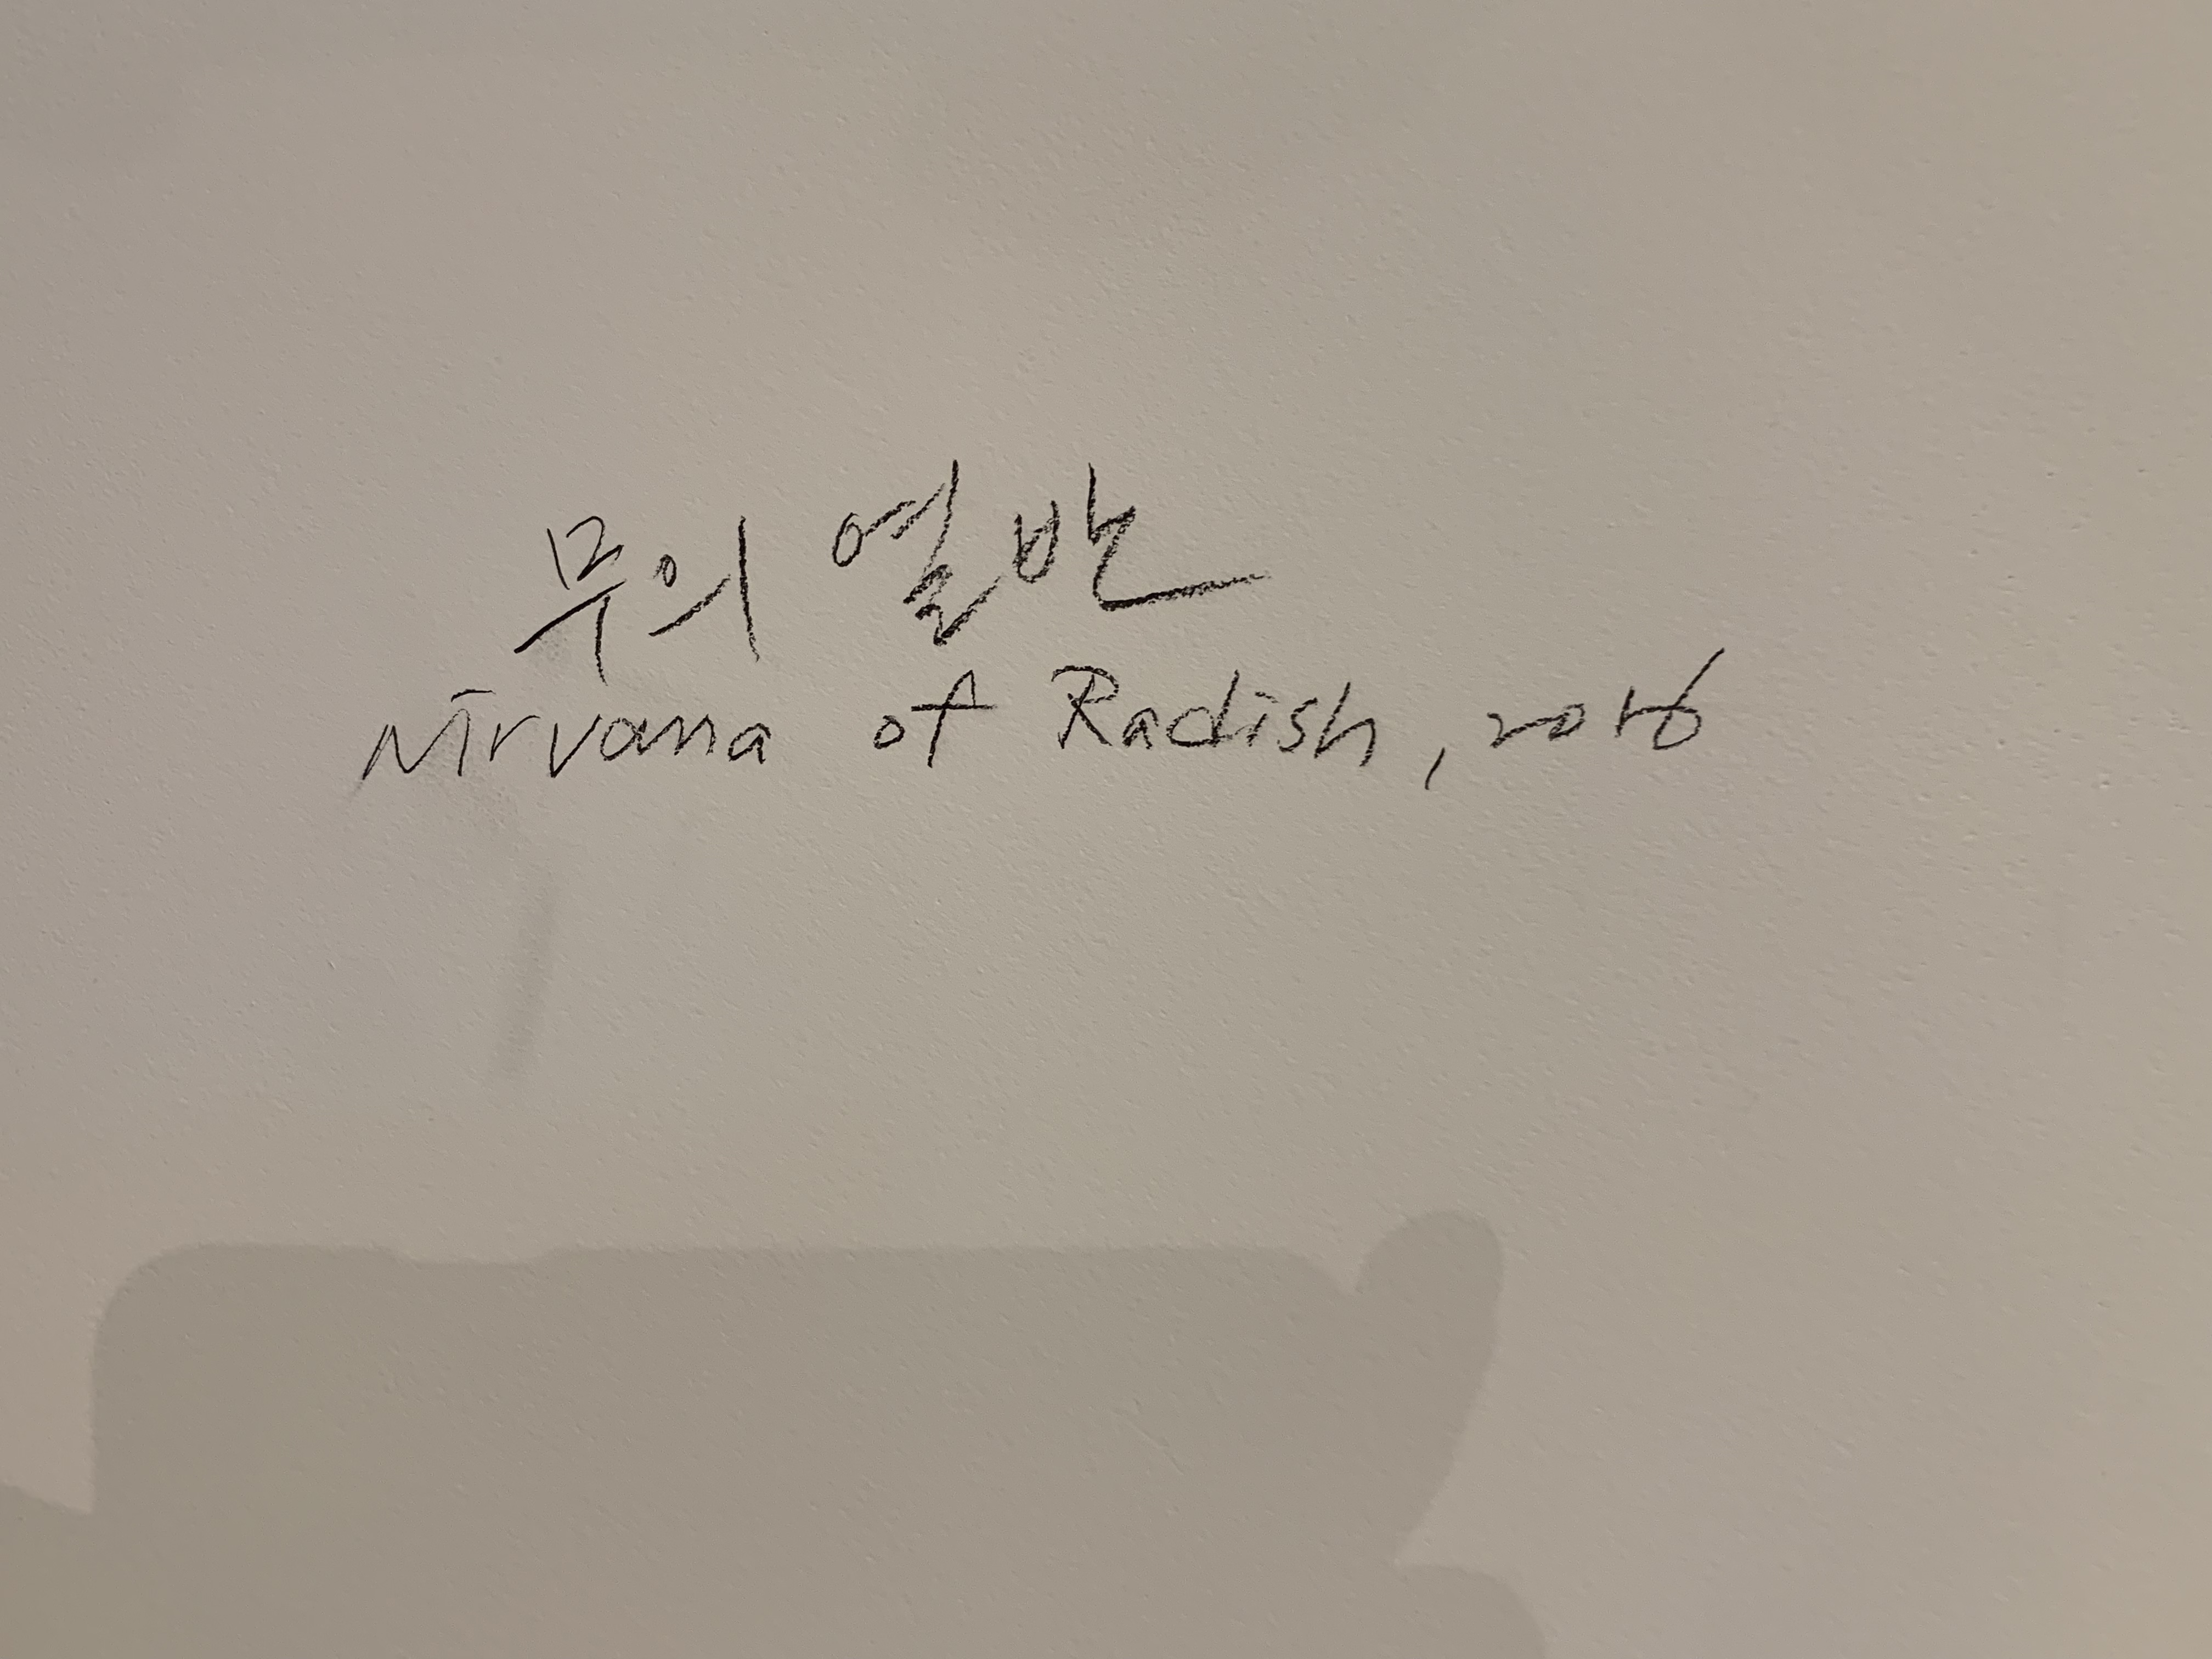 무의 열반
Nirvana of Radish, 2016